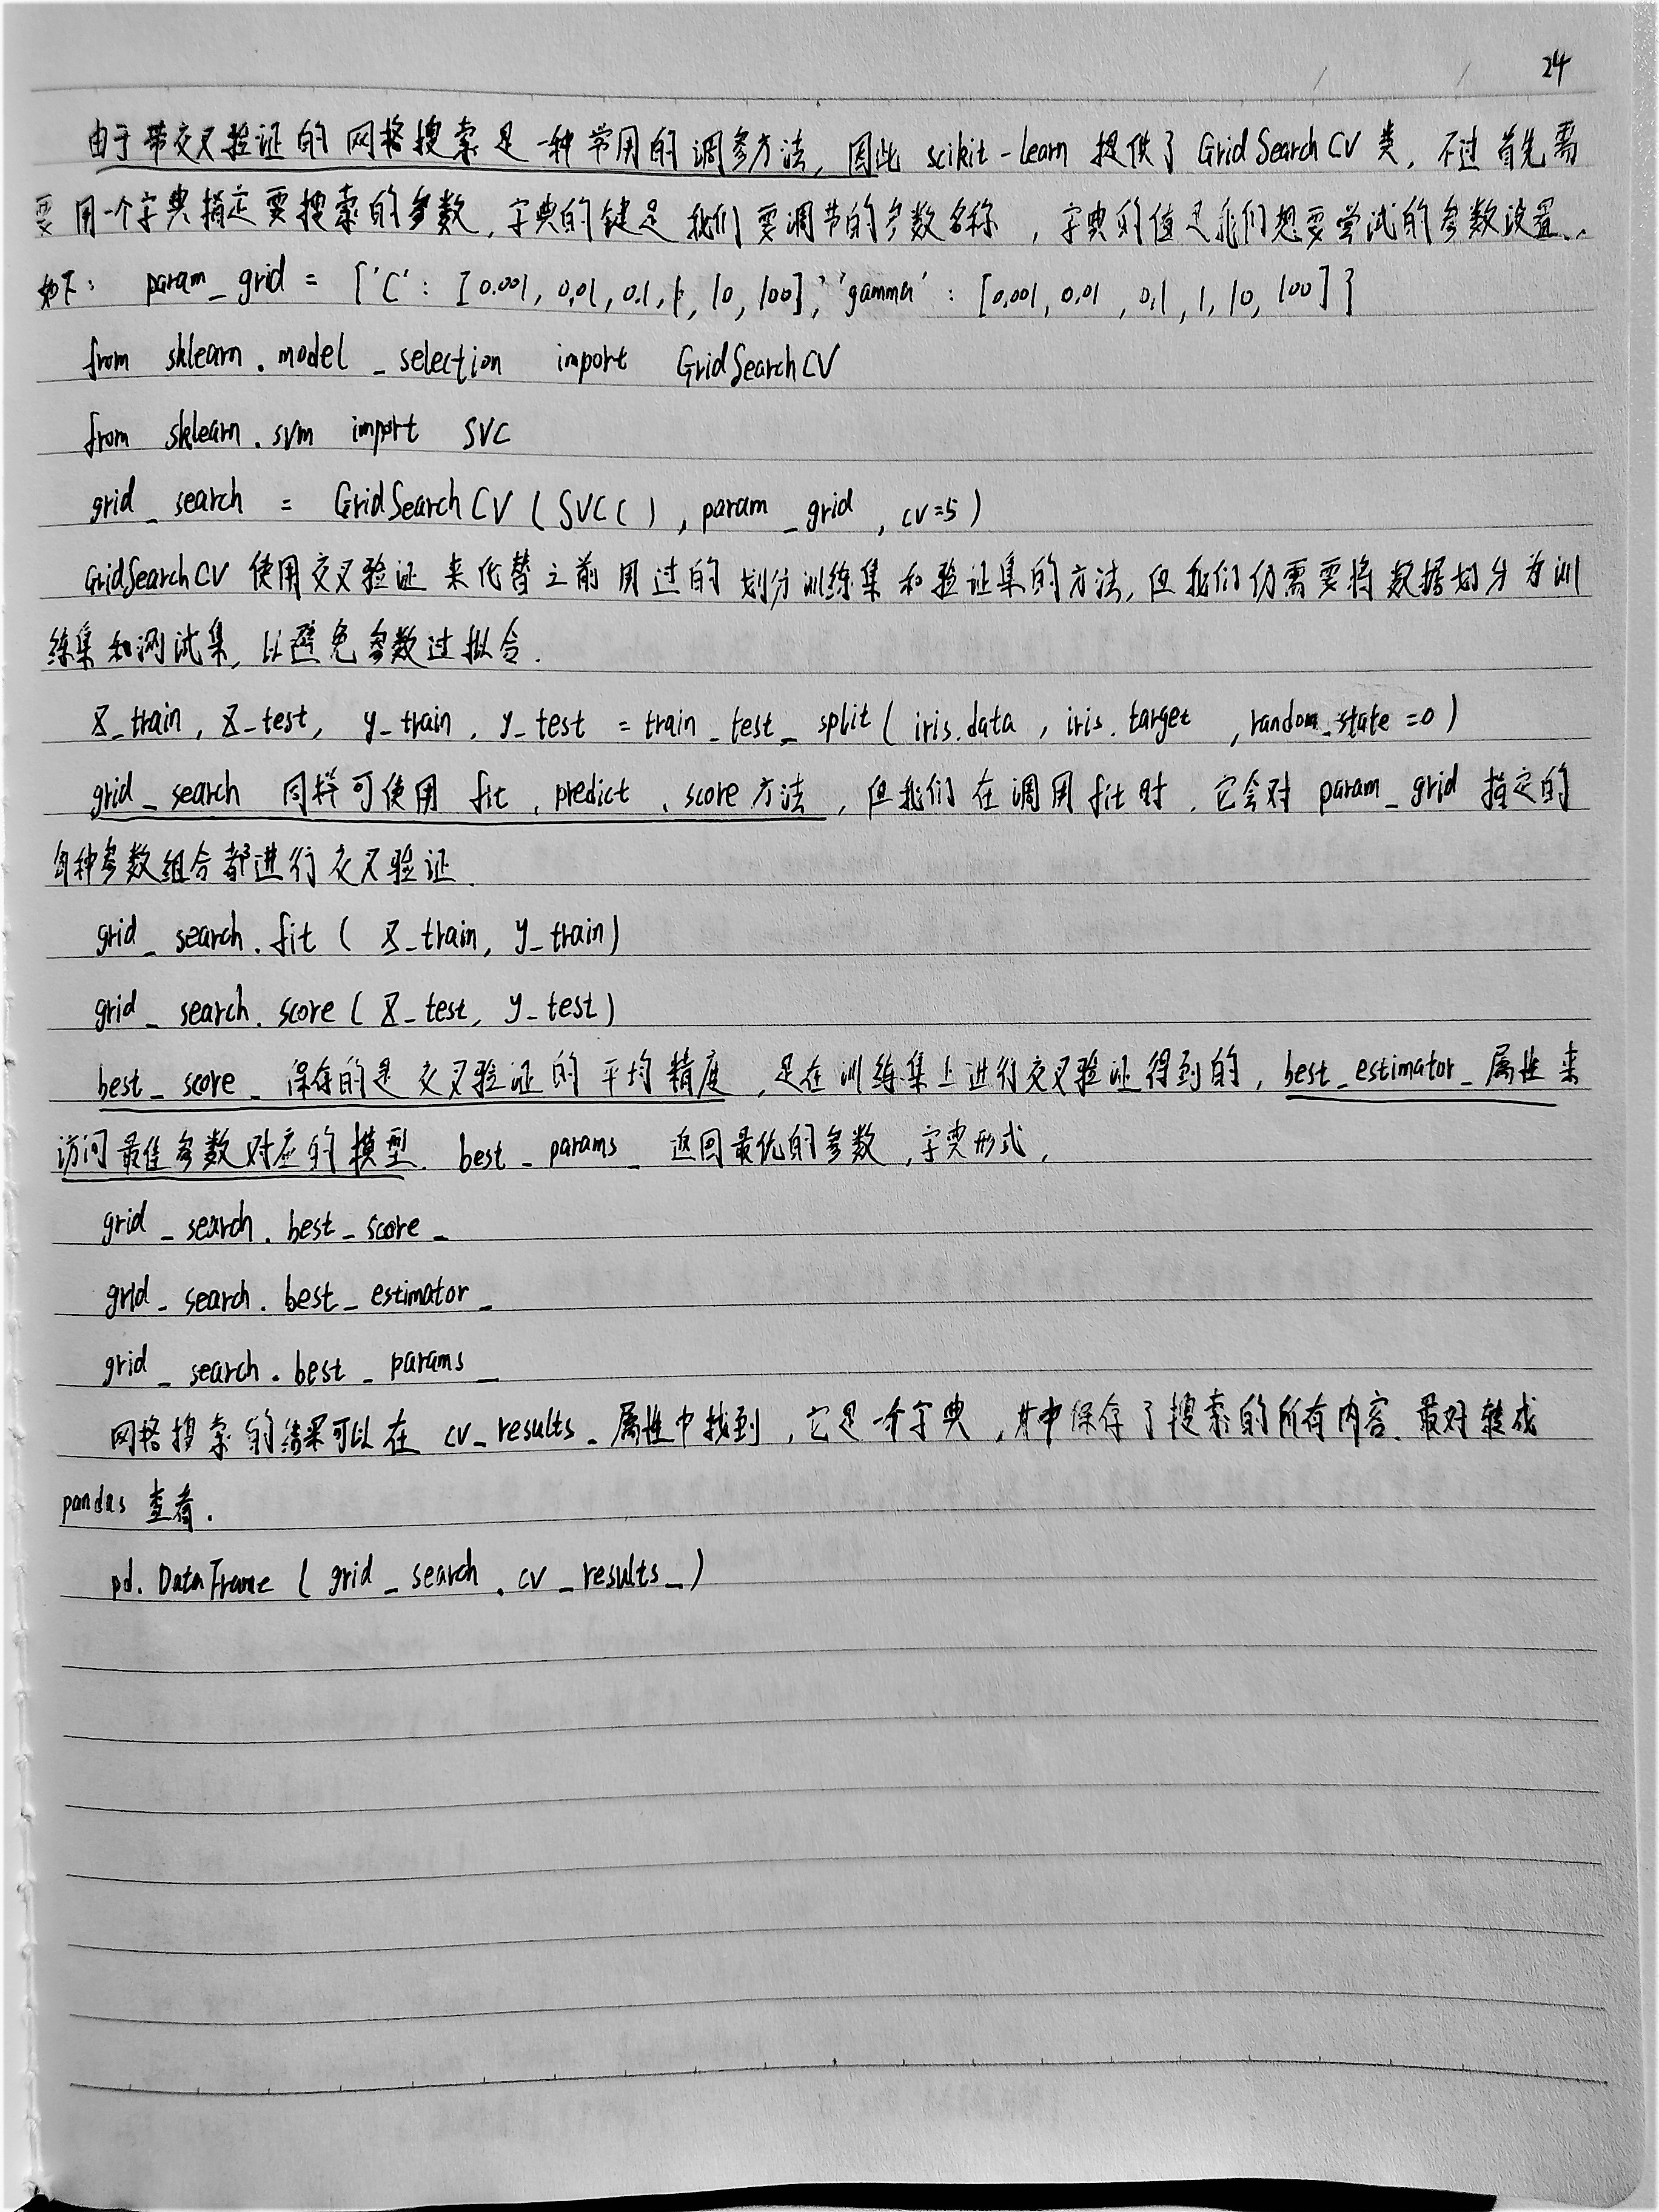 24
由于带交叉验证的网格搜索是一种常用的调参方法,因此 scikit-learn 提供了 GridSearchCV 类,不过首先需
要用一个字典指定要搜索的参数,字典的键是我们要调节的参数名称,字典的值是我们想要尝试的参数设置.
如下: param_grid = {'C': [0.001, 0.01, 0.1, 1, 10, 100], 'gamma': [0.001, 0.01, 0.1, 1, 10, 100]}
from sklearn.model_selection import GridSearchCV
from sklearn.svm import SVC
grid_search = GridSearchCV(SVC(), param_grid, cv=5)
GridSearchCV 使用交叉验证来代替之前用过的划分训练集和验证集的方法,但我们仍需要将数据划分为训
练集和测试集,以避免参数过拟合.
X_train, X_test, y_train, y_test = train_test_split(iris.data, iris.target, random_state=0)
grid_search 同样可使用 fit、predict、score方法,但我们在调用fit时,它会对 param_grid 指定的
每种参数组合都进行交叉验证.
grid_search.fit(X_train, y_train)
grid_search.score(X_test, y_test)
best_score_ 保存的是交叉验证的平均精度,是在训练集上进行交叉验证得到的,best_estimator_属性来
访问最佳参数对应的模型. best_params_ 返回最优的参数,字典形式.
grid_search.best_score_
grid_search.best_estimator_
grid_search.best_params_
网格搜索的结果可以在 cv_results_属性中找到,它是一个字典,其中保存了搜索的所有内容.最好转成
pandas 查看.
pd.DataFrame(grid_search.cv_results_)